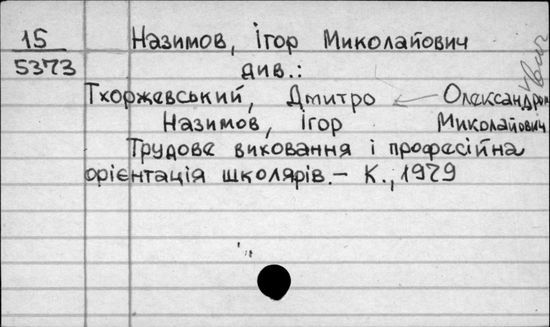 15 Назимов, Ігор Миколайович
5373 див.:
Тхоржевський, Дмитро Олександров
Назимов, Ігор Миколайович
Трудове виховання і професійна
орієнтація школярів.— К., 1979